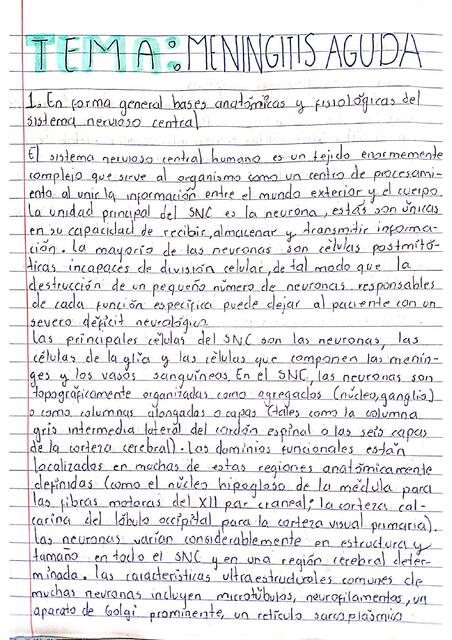 TEMA: MENINGITIS AGUDA
1. En forma general bases anatómicas y fisiológicas del
sistema nervioso central
El sistema nervioso central humano es un tejido enormemente
complejo que sirve al organismo como un centro de procesami-
ento al unir la información entre el mundo exterior y el cuerpo.
la unidad principal del SNC es la neurona, estás son únicas
en su capacidad de recibir, almacenar y transmitir informa-
ción. la mayoria de las neuronas son células postmitó-
ticas incapaces de división celular, de tal modo que la
destrucción de un pequeño número de neuronas responsables
de cada función especifica puede dejar al paciente con un
severo déficit neurológico
las principales células del SNC son las neuronas, las
células de la glia y las células que componen las menin-
ges y los vasos sanguineos. En el SNC, las neuronas son
topográficamente organizadas como agregados (núcleo, ganglia)
o como columnas alongadas o capas (tales como la columna
gris intermedia lateral del cordón espinal o las seis capas
de la corteza cerebral). los dominios funcionales están
localizados en muchas de estas regiones anatómicamente
definidas (como el núcleo hipogloso de la médula para
las fibras motoras del XII par craneal; la corteza cal-
carina del lóbulo occipital para la corteza visual primaria).
las neuronas varían considerablemente en estructura y
tamaño en todo el SNC y en una región cerebral deter-
minada. las características ultraestructurales comunes de
muchas neuronas incluyen microtúbulos, neurofilamentos, un
aparato de Golgi prominente, un retículo sarcoplásmico